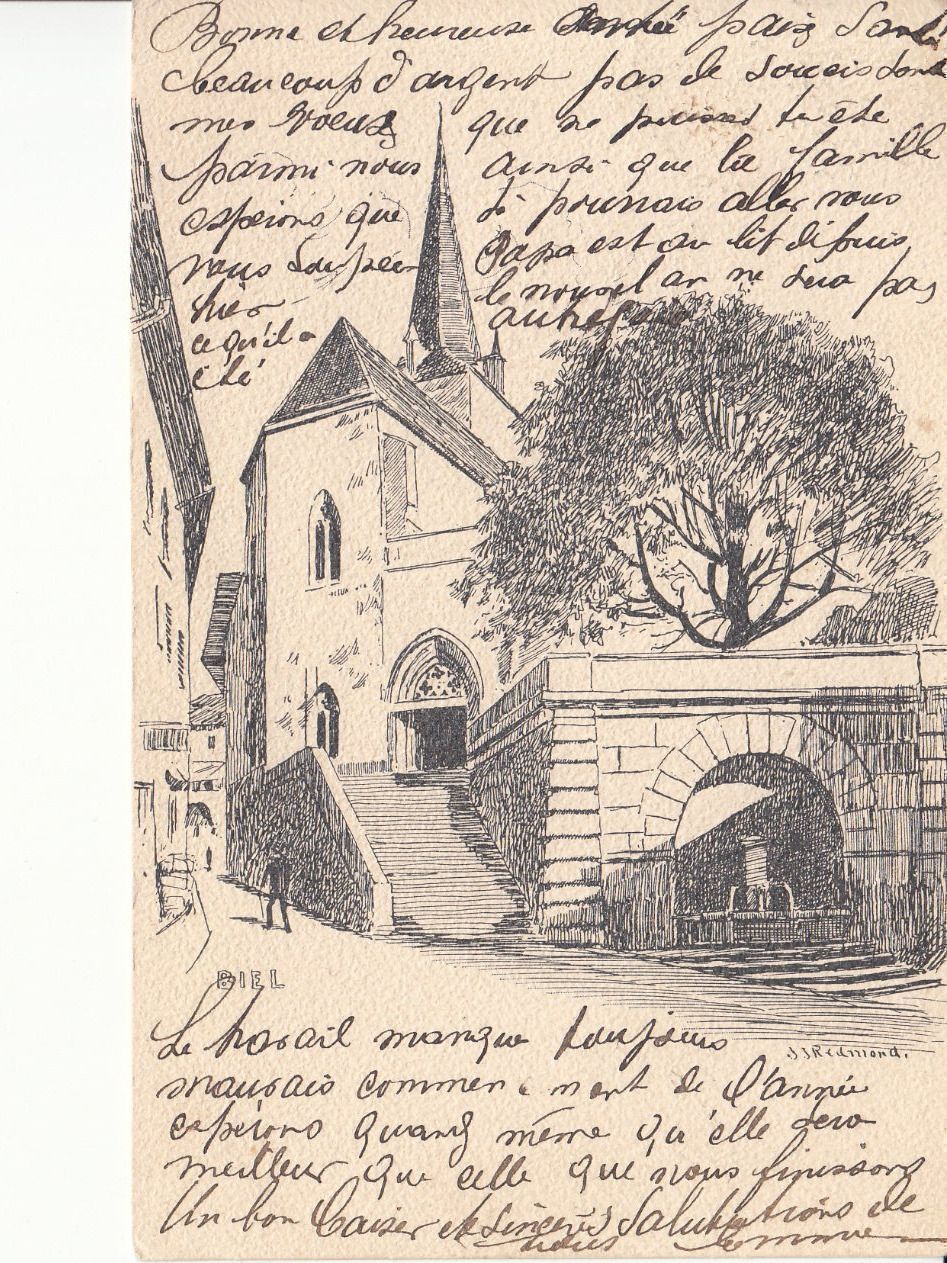 Bonne et heureuse année paix Santé
beaucoup d'argent pas de soucis sont
mes voeux que ne puisses tu être
parmi nous ainsi que la famille
espérons que si pourrais aller vous
vous Papa est au lit depuis
hier le nouvel an ne sera pas
ce qu'il a
été
BIEL
J J Redmond.
Le travail manque toujours
mauvais commencement de l'année
espérons quand même qu'elle sera
meilleur que celle que nous finissons
Un bon baiser et sincères salutations de